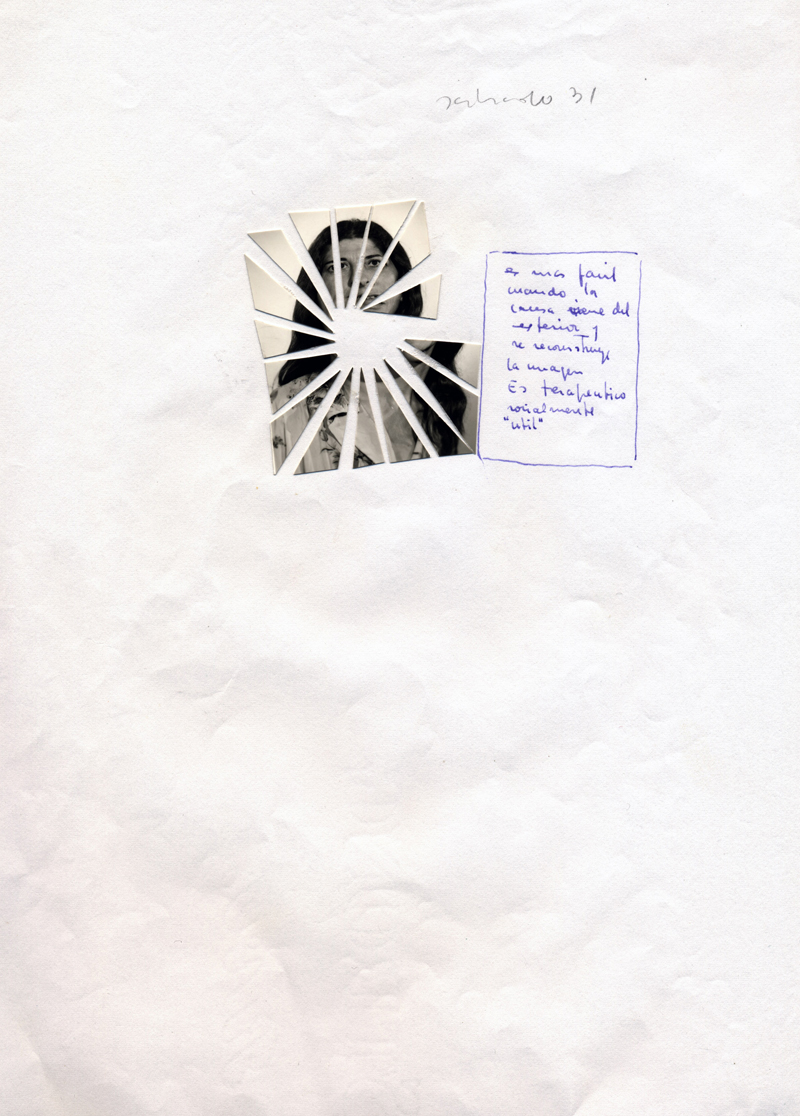 sabado 31
es mas facil
cuando la
causa viene del
exterior y
se reconstruye
la imagen
Es terapeutico
socialmente
"util"